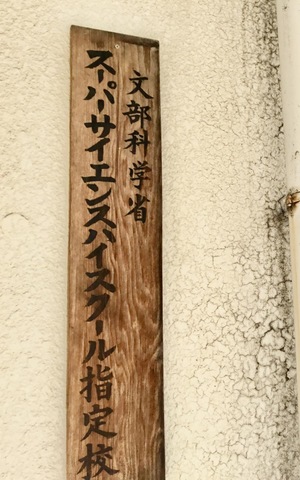 文部科学省
スーパーサイエンスハイスクール指定校